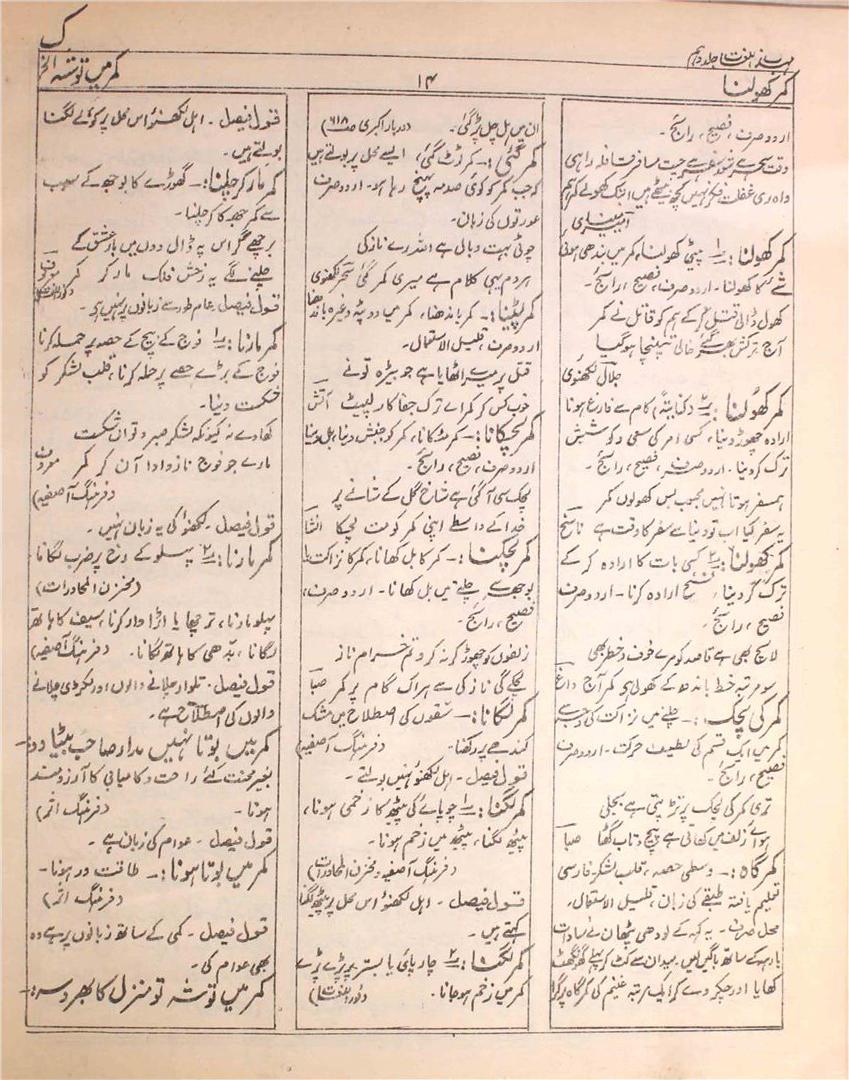 ک
مہذب اللغات جلد دہم
کمر کھولنا
۱۴
کمر میں توشہ الخ
اردو صرف، فصیح، رائج۔
وقت سحر ہے شور سفر ہے جیت مسافر قافلہ راہی
واہ ری غفلت فکر نہیں کچھ بیٹھے ہیں ابتک کھولے کمر ہم
امیر مینائی
کمر کھولنا :۔ (۱) پیٹی کھولنا، کمر میں بندھی ہوئی
شے کا کھولنا۔ اردو صرف، فصیح، رائج۔
کھول ڈالی قتل کر کے ہم کو قاتل نے کمر
آج ترکش بھر گئے خالی تپنچا ہو گیا
جلال لکھنوی
کمر کھولنا :۔ (۲) (کنایۃً) کام سے فارغ ہونا
ارادہ چھوڑ دینا، کسی امر کی سعی و کوشش
ترک کر دینا۔ اردو صرف، فصیح، رائج۔
ہمسفر ہوتا نہیں محبوب بس کھولوں کمر
یہ سفر کیا اب تو دنیا سے سفر کا وقت ہے ناسخ
کمر کھولنا :۔ (۲) کسی بات کا ارادہ کر کے
ترک کر دینا، فسخ ارادہ کرنا۔ اردو صرف
فصیح، رائج۔
لالچ بھی ہے قاصد کو مرے خوف و خطر بھی
سو مرتبہ خط باندھ کے کھولی ہو کمر آج داغ
کمر کی لچک :۔ چلنے میں نزاکت کی وجہ سے
کمر میں ایک قسم کی لطیف حرکت۔ اردو صرف
فصیح، رائج۔
تری کمر کی لچک پر تڑپتی ہے بجلی
ہوائے زلف میں کھاتی ہے پیچ و تاب گھٹا صبا
کمر گاہ :۔ وسطی حصہ، قلب لشکر فارسی
تعلیم یافتہ طبقے کی زبان، قلیل الاستعمال۔
محل صرف۔ یہ کہہ کے لودھی پٹھان نے سادات
بارہہ کے ساتھ باگیں لیں۔ میدان سے کٹ کر پہلے گھونگھٹ
کھایا اور چکر دے کر ایک مرتبہ غنیم کی کمر گاہ پر گرا
ان میں ہل چل پڑ گئی۔ (دربار اکبری صفحہ ۶۱۸)
کمر گئی :۔ کمر ٹوٹ گئی، ایسے محل پر بولتے ہیں
کہ جب کمر کو کوئی صدمہ پہنچ رہا ہو۔ اردو صرف
عورتوں کی زبان۔
چوٹی بہت وبالی ہے اللہ رے نازکی
ہر دم یہی کلام ہے میری کمر گئی سحر لکھنوی
کمر لپیٹنا :۔ کمر باندھنا، کمر میں دوپٹہ وغیرہ باندھنا
اردو صرف، قلیل الاستعمال۔
قتل پر میرے اٹھایا ہے جو بیڑہ تو نے
خوب کس کر کمر اے ترک جفا کار لپیٹ آتش
کمر لچکانا :۔ کمر مٹکانا، کمر کو جنبش دینا، بل دینا
اردو صرف، فصیح، رائج۔
لچک سی آ گئی ہے شاخ گل کے شانے پر
خدا کے واسطے اپنی کمر کو مت لچکا انشا
کمر لچکنا :۔ کمر کا بل کھانا، کمر کا نزاکت یا
بوجھ سے چلنے میں بل کھانا۔ اردو صرف،
فصیح، رائج۔
زلفوں کو چھوڑ کر نہ کرو تم خرام ناز
لچکے گی نازکی سے ہر اک گام پر کمر صبا
کمر لگانا :۔ سقوں کی اصطلاح میں مشک
کندھے پر رکھنا۔ (فرہنگ آصفیہ)
قول فیصل۔ اہل لکھنؤ نہیں بولتے۔
کمر لگنا :۔ (۱) چوپائے کی پیٹھ کا زخمی ہونا،
پیٹھ لگنا، پیٹھ میں زخم ہونا۔
(فرہنگ آصفیہ و مخزن المحاورات)
قول فیصل۔ اہل لکھنؤ اس محل پر پیٹھ لگنا
کہتے ہیں۔
کمر لگنا :۔ (۲) چارپائی یا بستر پر پڑے پڑے
کمر میں زخم ہو جانا۔ (نور اللغات)
قول فیصل۔ اہل لکھنؤ اس محل پر کولے لگنا
بولتے ہیں۔
کمر مار کر چلنا :۔ گھوڑے کا بوجھ کے سبب
سے کمر جھکا کر چلنا۔
برچھے مگر اس پہ ڈال دوں میں بار عشق کے
چلنے لگے یہ زخش فلک مار کر کمر معروف
(نور اللغات)
قول فیصل عام طور سے زبانوں پر نہیں ہے۔
کمر مارنا :۔ (۱) فوج کے بیچ کے حصہ پر حملہ کرنا
فوج کے بڑے حصے پر حملہ کرنا، قلب لشکر کو
شکست دینا۔
کھادے نہ کیونکہ لشکر صبر و تواں شکست
مارے جو فوج ناز و ادا آن کر کمر معروف
(فرہنگ آصفیہ)
قول فیصل۔ لکھنؤ کی یہ زبان نہیں۔
کمر مارنا :۔ (۲) پہلو کے رخ پر ضرب لگانا
(مخزن المحاورات)
پہلو مارنا، ترچھا یا اڑا وار کرنا، سیف کا ہاتھ
لگانا، بدھی کا ہاتھ لگانا۔ (فرہنگ آصفیہ)
قول فیصل۔ تلوار چلانے والوں اور لکڑی چلانے
والوں کی اصطلاح ہے۔
کمر میں بوتا نہیں مدار صاحب بیٹا دو :۔
بغیر محنت کئے راحت و کامیابی کا آرزو مند
ہونا۔ (فرہنگ اثر)
قول فیصل۔ عوام کی زبان ہے۔
کمر میں بوتا ہونا :۔ طاقت ور ہونا۔
(فرہنگ اثر)
قول فیصل۔ کمی کے ساتھ زبانوں پر ہے وہ
بھی عوام کی۔
کمر میں توشہ تو منزل کا بھروسہ :۔